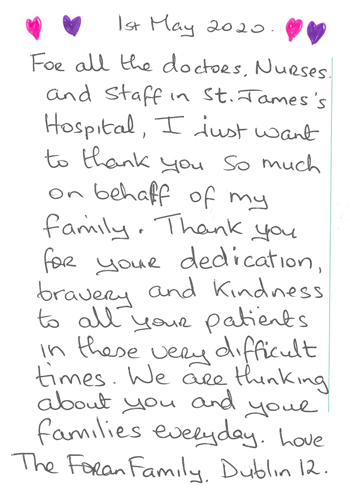 1st May 2020.
For all the doctors, Nurses.
and Staff in St. James's
Hospital, I just want
to thank you so much
on behalf of my
family. Thank you
for your dedication,
bravery and kindness
to all your patients
in these very difficult
times. We are thinking
about you and your
families everyday. Love
The Foran Family. Dublin 12.